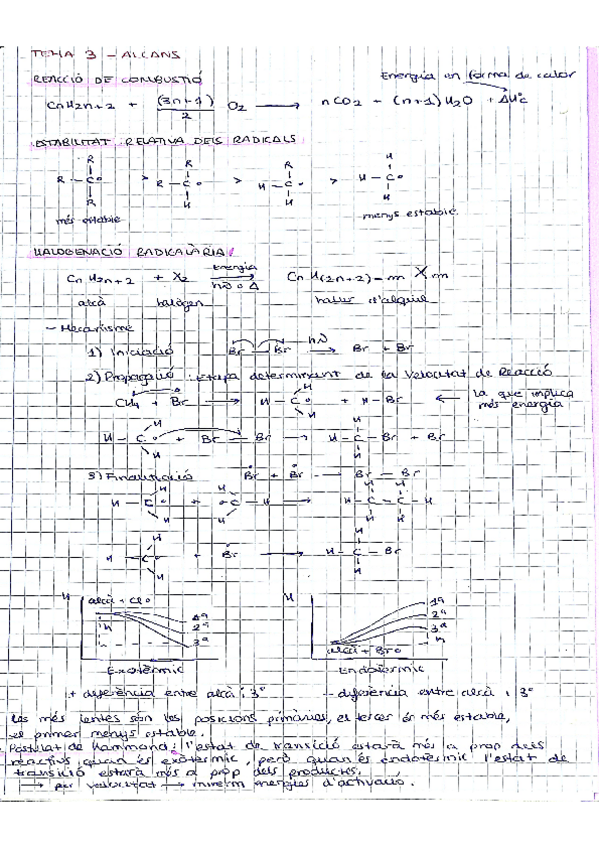 TEMA 3 - ALCANS
REACCIÓ DE COMBUSTIÓ
Energia en forma de calor
CnH2n+2 + (3n+1)/2 O2 → nCO2 + (n+1) H2O + ΔHºc
ESTABILITAT RELATIVA DELS RADICALS
R R R H
R - C∘ > R - C∘ > H - C∘ > H - C∘
R H H H
més estable menys estable.
HALOGENACIÓ RADICALÀRIA
CnH2n+2 + X2 → Energia hν o Δ CnH(2n+2)-m Xm
alcà halògen halur d'alquil
- Mecanisme
1) Iniciació Br - Br → hν Br + Br
2) Propagació: Etapa determinant de la velocitat de Reacció
CH4 + Br → H - C∘ H H + H - Br ← La que implica més energia
H - C∘ H H + Br - Br → H - C - Br H H + Br
3) Finalització Br + Br → Br - Br
H - C∘ H H + ∘C - H H H → H - C - C - H H H H H
H - C∘ H H + Br → H - C - Br H H
H alcà + Cl∘ 1ª 2ª 3ª
H 1ª 2ª 3ª alcà + Br∘
Exotèrmic Endotèrmic
+ diferència entre alcà i 3º - diferència entre alcà i 3º
Les més lentes són les posicions primàries, el tercer és més estable,
el primer menys estable.
Postulat de Hammond: l'estat de transició estarà més a prop dels
reactius quan és exotèrmic, però quan és endotèrmic l'estat de
transició estarà més a prop dels productes.
→ per velocitat → mirem energies d'activació.